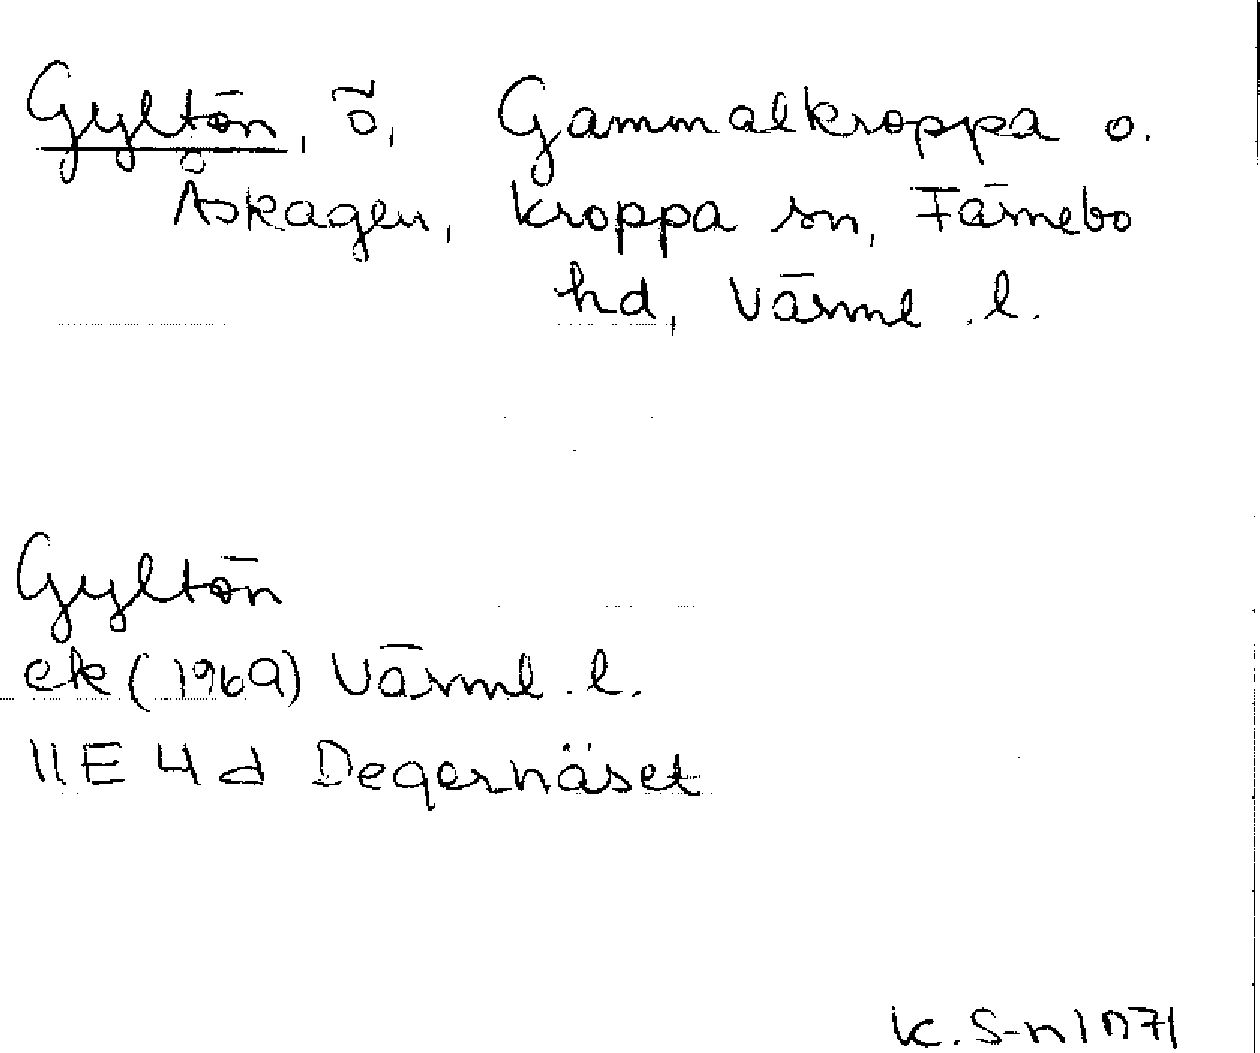 Gyltön, ö, Gammalkroppa o.
Åskagen, Kroppa sn, Färnebo
hd, Värml. l.
Gyltön
ek (1969) Värml. l.
11E 4d Degernäset
K. S-n 1971